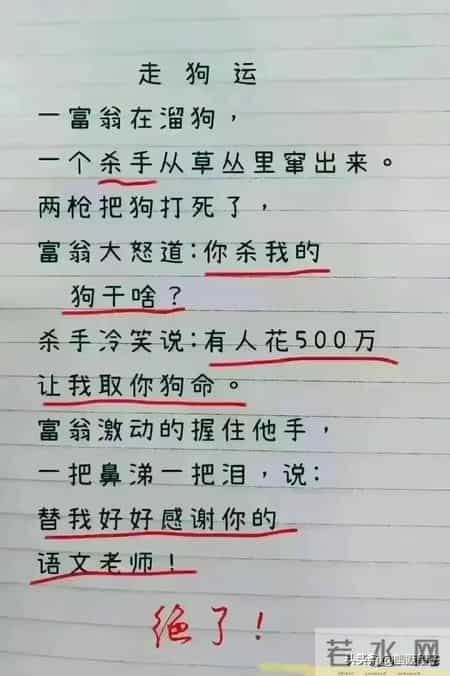 走狗运
一富翁在溜狗，
一个杀手从草丛里窜出来。
两枪把狗打死了，
富翁大怒道:你杀我的
狗干啥？
杀手冷笑说:有人花500万
让我取你狗命。
富翁激动的握住他手，
一把鼻涕一把泪，说:
替我好好感谢你的
语文老师！
绝了！
若水网